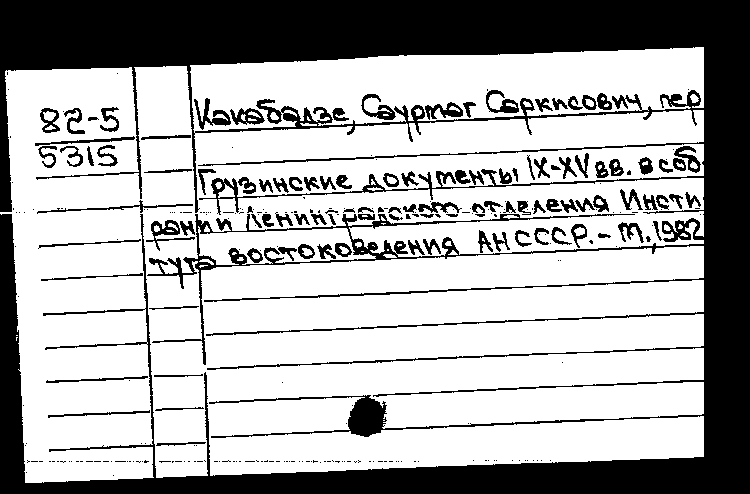 82-5
5315
Какабадзе, Саурмаг Саркисович, пер
Грузинские документы IX-XV вв. в соб-
рании Ленинградского отделения Инсти
тута востоковедения АН СССР. - М., 1982